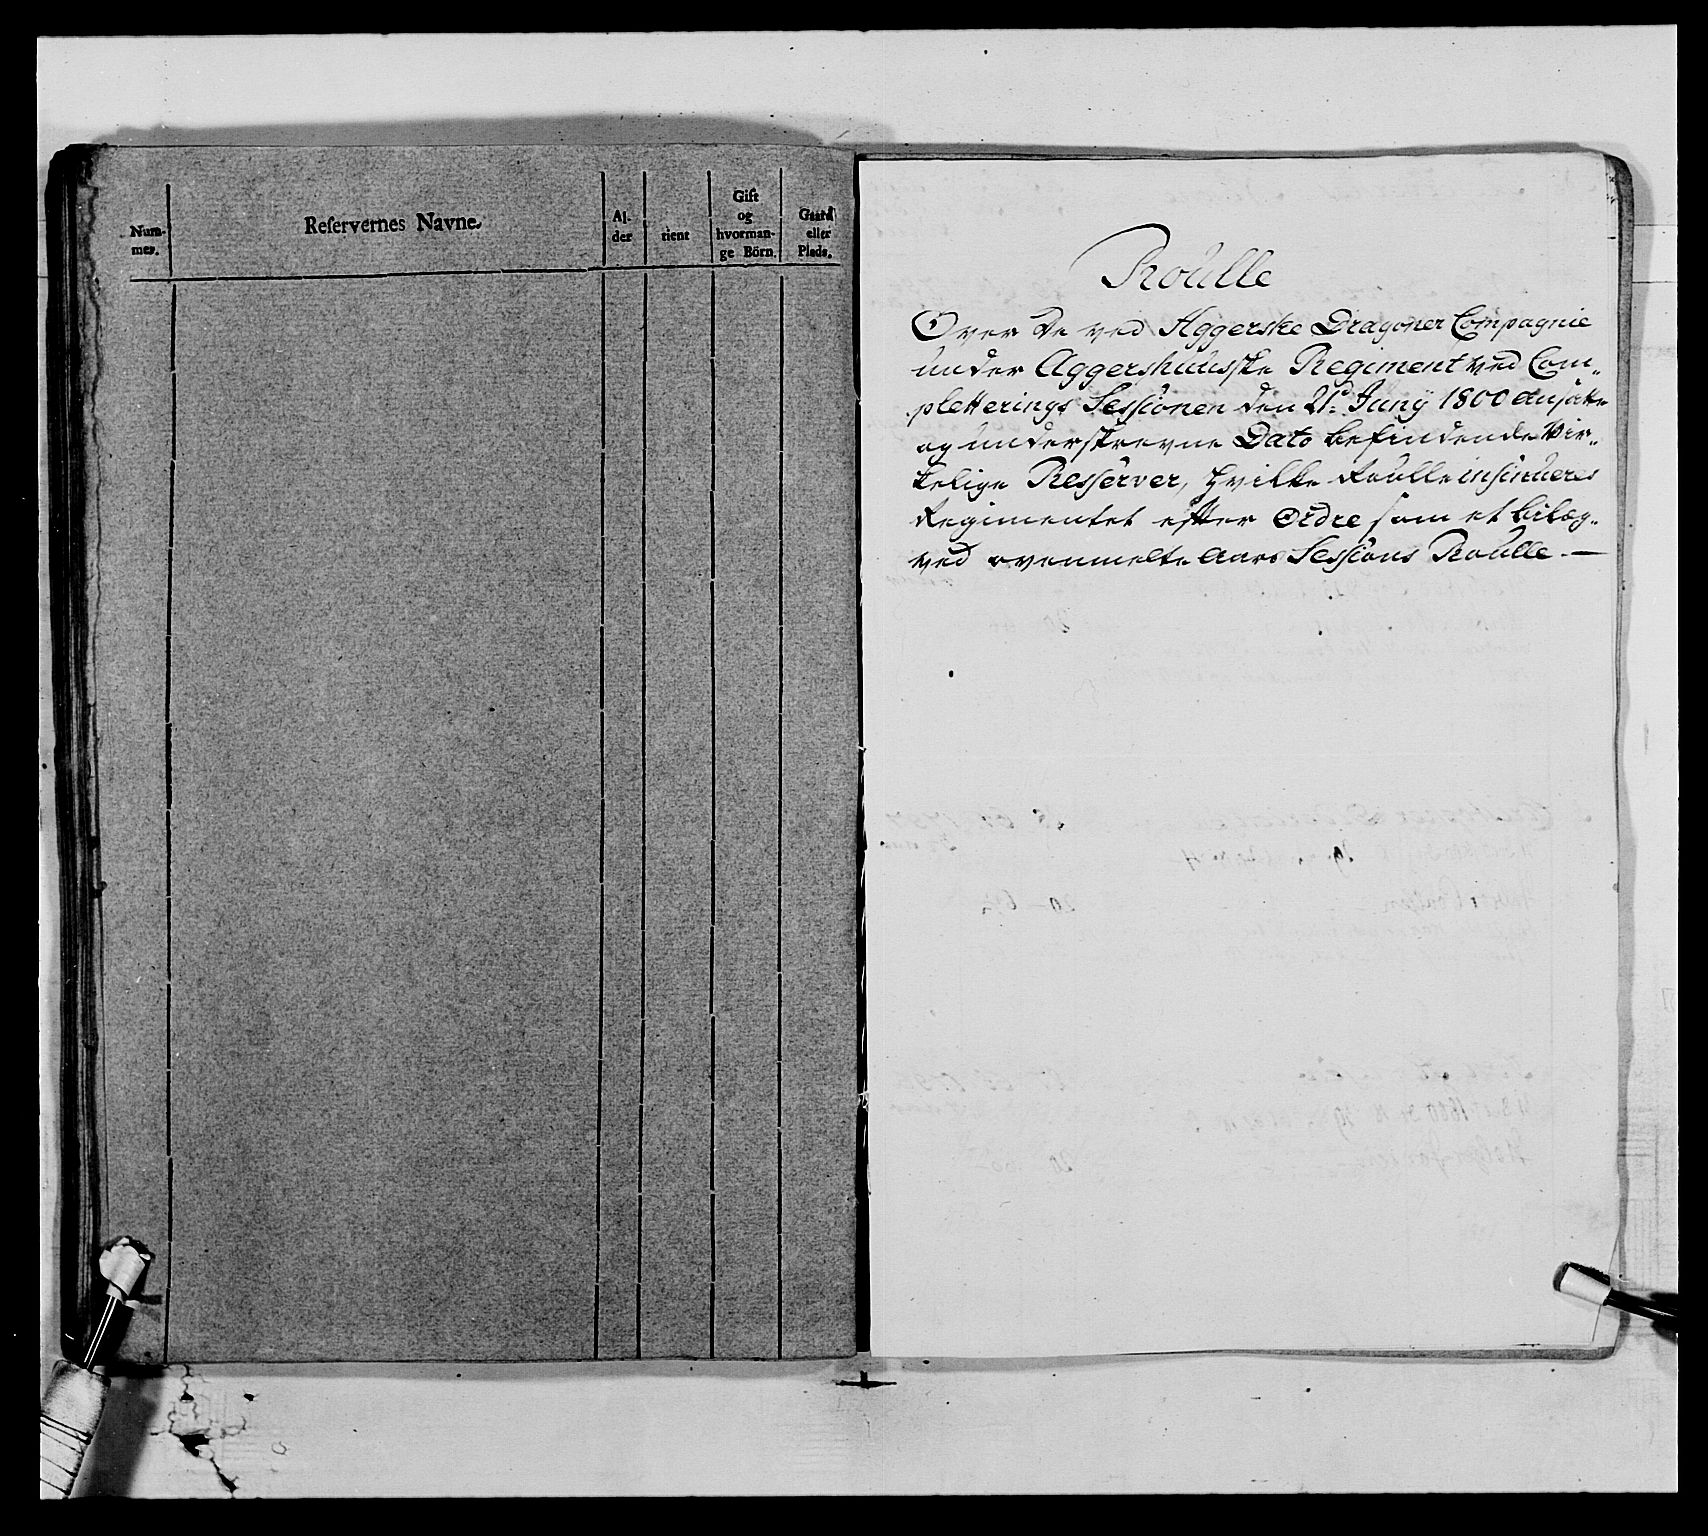 Num-
mer.
Reservernes Navne.
Al-
der
tient
Gift
og
hvorman-
ge Börn.
Gaard
eller
Plads.
Roulle
Over de ved Aggerske Dragoner Compagnie
under Aggershuusske Regiment ved Com-
pletterings Sessionen den 21de Junÿ 1800 ansatte
og underskrevne Dato befindende Vir-
kelige Resserver, hvilke Roulle insinueres
Regimentet efter Ordre som et bilag
ved ovenmelte Aars Sessions Roulle. —